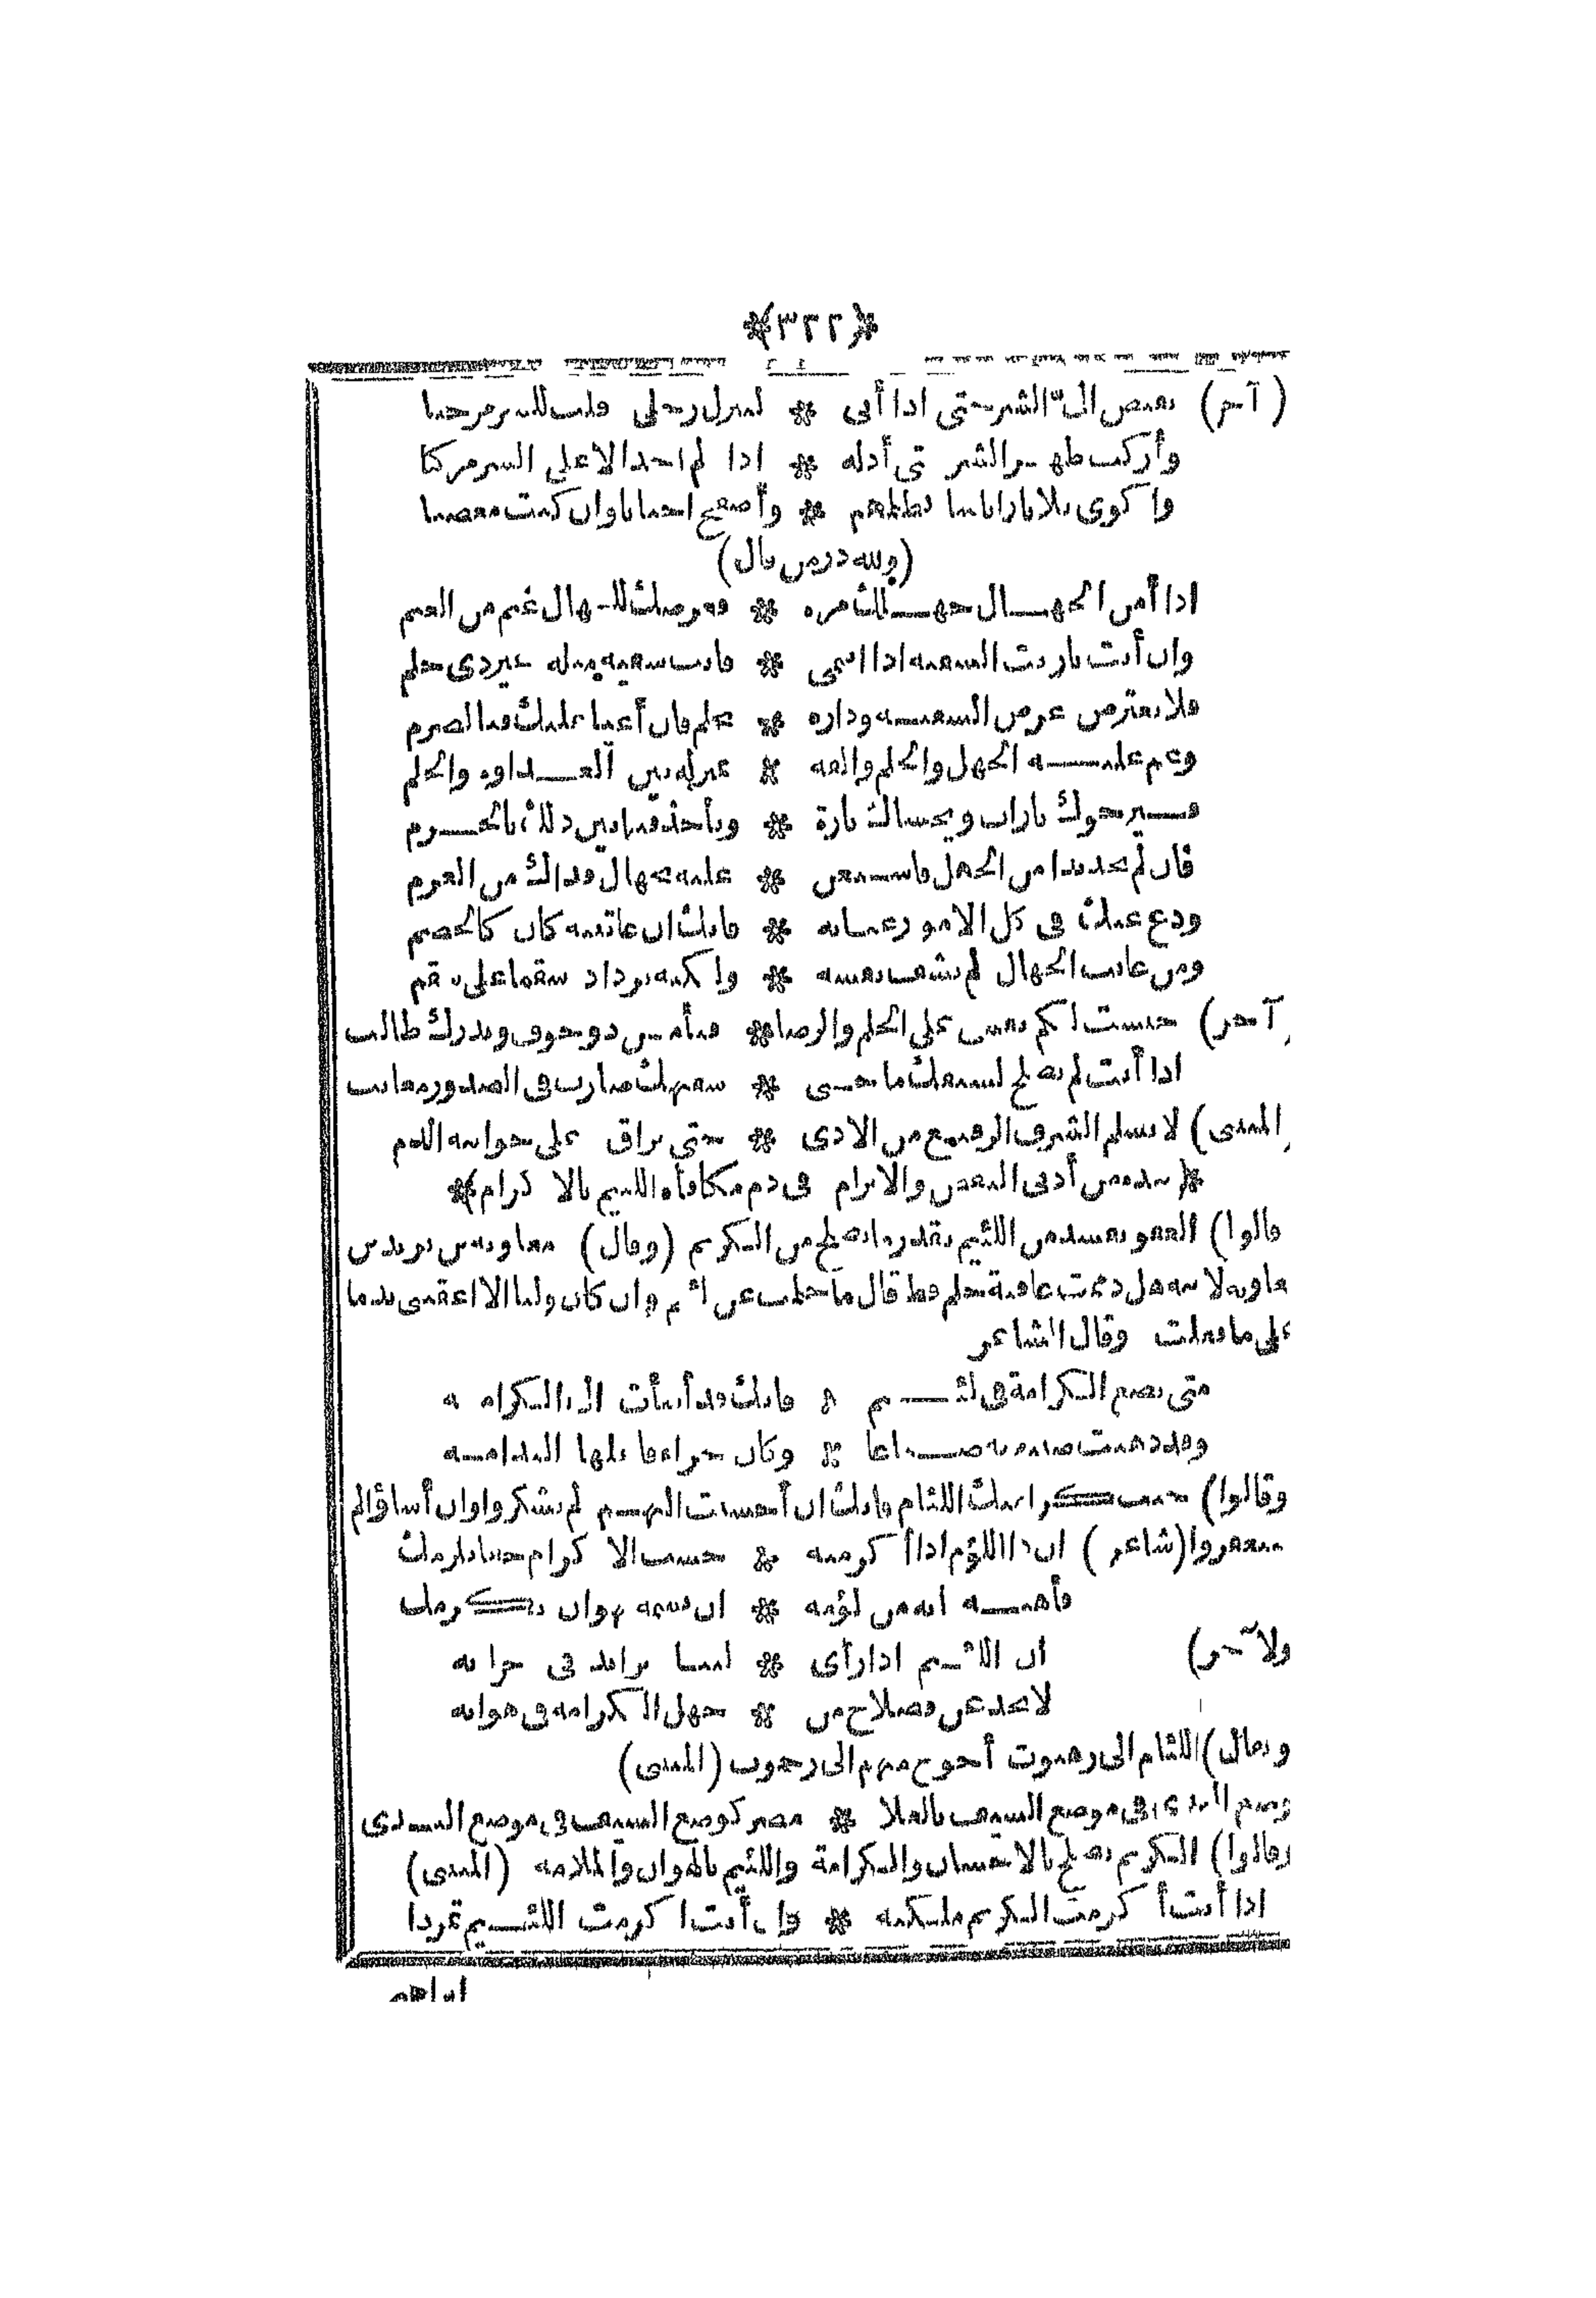 *(٣٢٢)*
(آخر) بغيض الىّ الشر حتى اذا أتى * لمنزل رحلى قلت للشر مرحبا
وأركب ظهر الشر حتى أذله * اذا لم أجد الا على الشر مركبا
واكوى بلا نار اناسا بظلمهم * وأصفح احيانا وان كنت مغضبا
(ولله در من قال)
اذا أمن الجهال جهلك مرة * فعرضك للجهال غنم من الغنم
وان أنت نازيت السفيه اذا انتمى * فانت سفيه مثله غير ذى حلم
فلا تعترض عرض السفيه وداره * بحلم فان أعيا عليك فبالصرم
وعم عليه الجهل والحلم والقه * بمنزلة بين العداوة والحلم
فيرجوك تارات ويخشاك تارة * وتأخذ فيما بين ذلك بالحزم
فان لم تجد بدا من الجهل فاستعن * عليه بجهال فذاك من العزم
ودع عنك فى كل الامور عتابه * فانك ان عاتبته كان كالخصم
ومن عاتب الجهال لم يشف نفسه * ولكنه يزداد سقما على سقم
آخر) حبست لكم نفسى على الحلم والرضا * فيأمن ذو خوف ويدرك طالب
اذا أنت لم تصلح لنفسك ما تجنى * سفهك ضاربت فى الصدور معاتب
المتنبى) لا يسلم الشرف الرفيع من الاذى * حتى يراق على جوانبه الدم
*(بنده من أدنى النقض والابرام فى ذم مكافأة اللئيم بالاكرام)*
قالوا) العفو يفسد من اللئيم بقدر ما يصلح من الكريم (وقال) معاوية بن يزيد بن
معاوية لابيه هل ذممت عاقبة حلم قط قال ما حلمت عن لئيم وان كان وليا الا أعقبنى ندما
على ما فعلت وقال الشاعر
متى تضع الكرامة فى لئيم * فانك قد أسأت الى الكرامه
وقد ذهبت صنيعته ضياعا * وكان جزاء فاعلها الندامه
وقالوا) جنب كرامتك اللئام فانك ان أحسنت اليهم لم يشكروا وان أساؤا لم
يستغفروا (شاعر) ان ذا اللؤم اذا أكرمته * حسب الاكرام حقا يلزمك
فأهنه انه من لؤمه * ان تهنه بهوان يكرمك
ولآخر) ان اللئيم اذا رأى * لينا تزايد فى حرانه
لا تخدعن فصلاح من * جهل الكرامة فى هوانه
ويقال) اللئام الى رهبوت أحوج منهم الى رحموت (المتنبى)
ووضع الندى فى موضع السيف بالعلا * مضر كوضع السيف فى موضع الندى
وقالوا) الكريم يصلح بالاحسان والكرامة واللئيم بالهوان والملامه (المتنبى)
اذا أنت أكرمت الكريم ملكته * وان أنت اكرمت اللئيم تمردا
ابراهيم